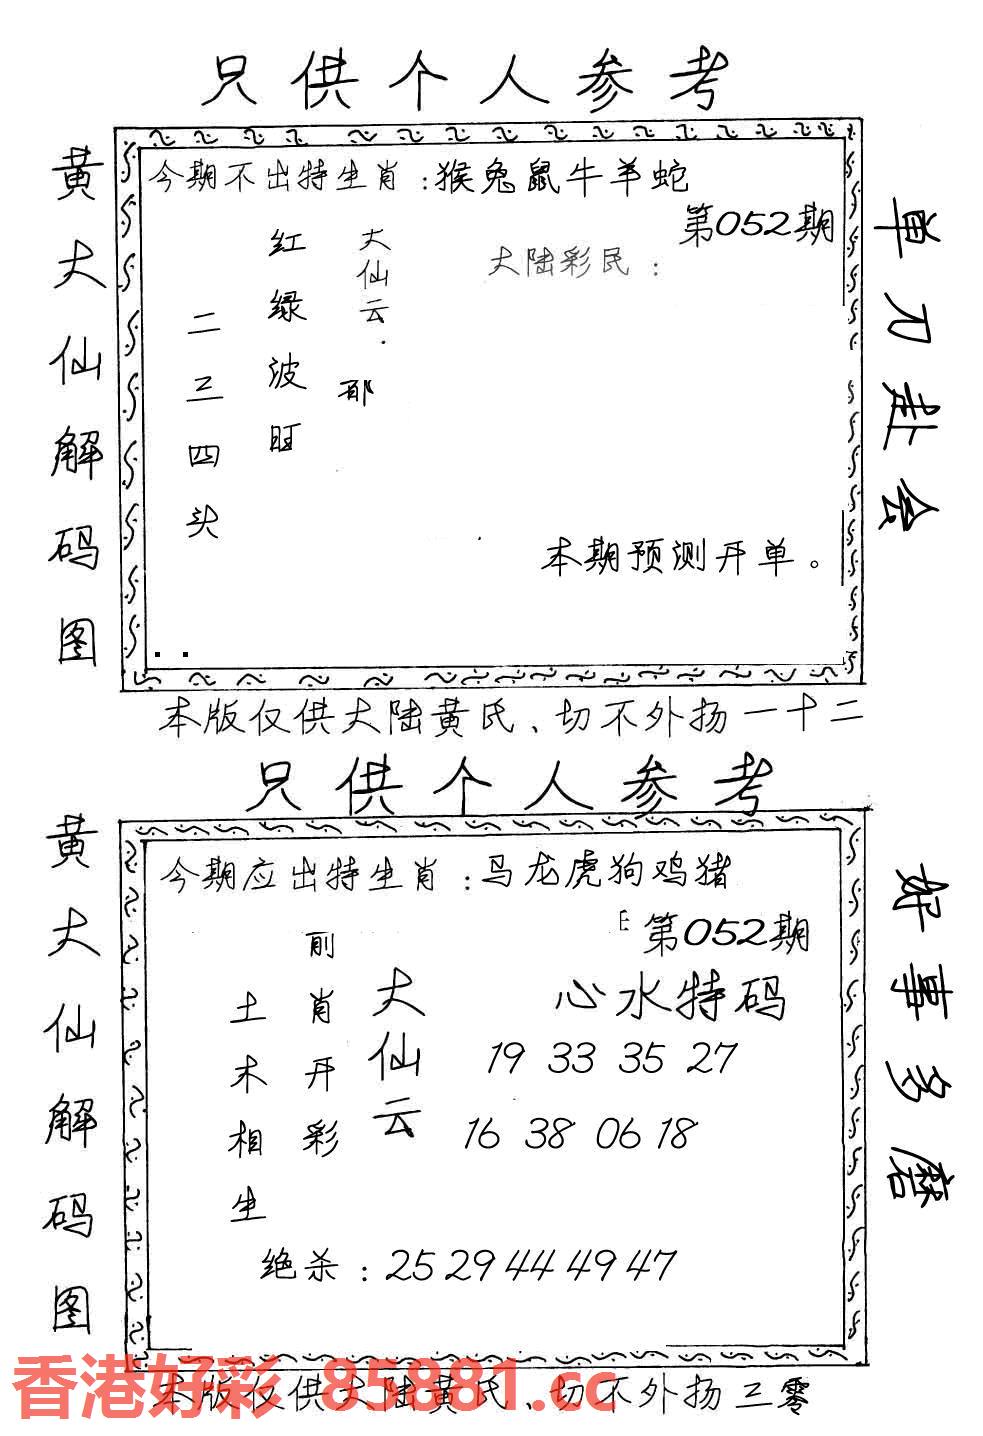 只供个人参考
黄大仙解码图
今期不出特生肖:猴兔鼠牛羊蛇
第052期
大陆彩民:
大仙云.
红绿波旺
二三四头
本期预测开单。
单刀赴会
本版仅供大陆黄氏、切不外扬一十二
只供个人参考
黄大仙解码图
今期应出特生肖:马龙虎狗鸡猪
第052期
心水特码
大仙云
前肖开彩
土木相生
19 33 35 27
16 38 06 18
绝杀:25 29 44 49 47
好事多磨
本版仅供大陆黄氏、切不外扬三零
香港好彩 85881.cc